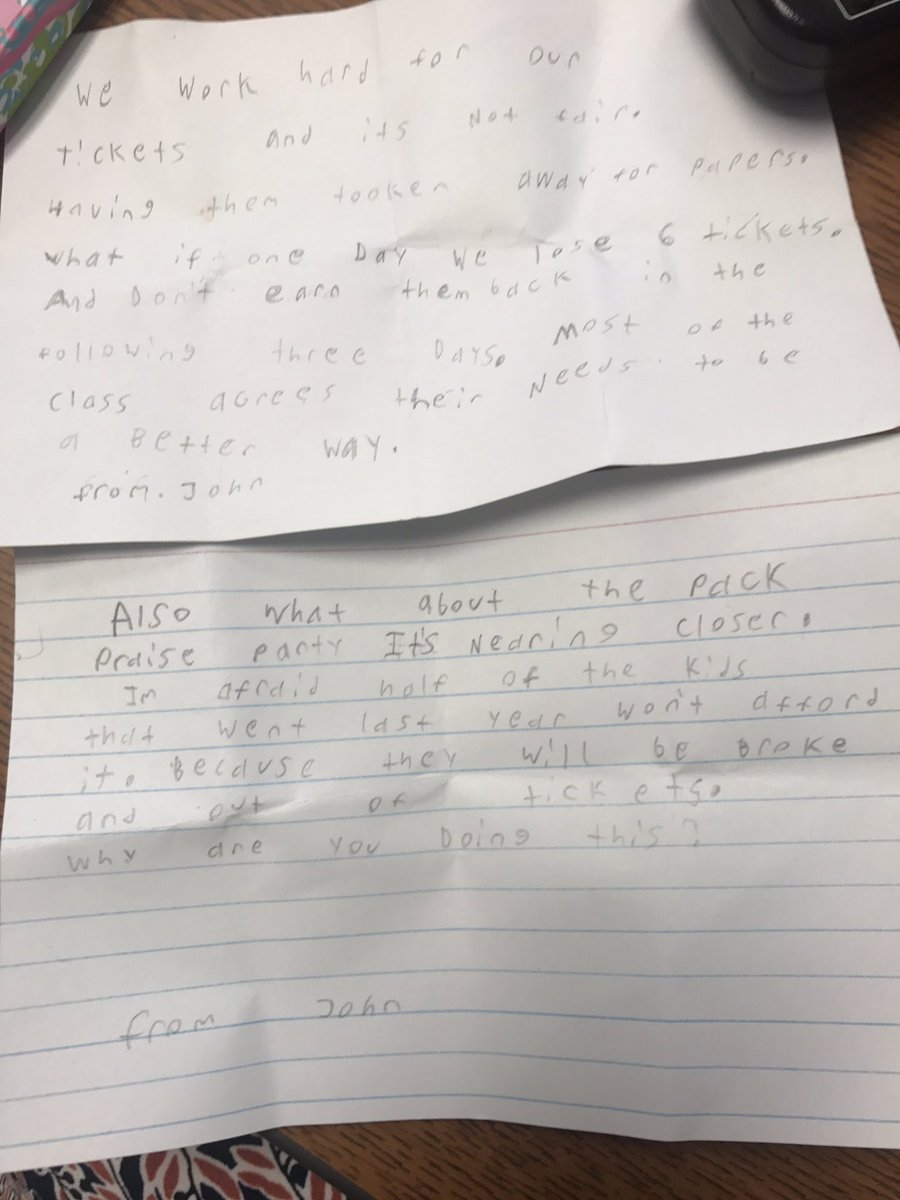 We work hard for our
tickets and its Not fair.
Having them tooken away for papers.
what if one Day we lose 6 tickets.
And Don't earn them back in the
following three Days. Most of the
class agrees their Needs to be
a Better way.
from. John
Also what about the pack
praise party It's Nearing closer.
Im afraid half of the kids
that went last year won't afford
it. Because they will be Broke
and out of tickets.
why are you Doing this?
from John